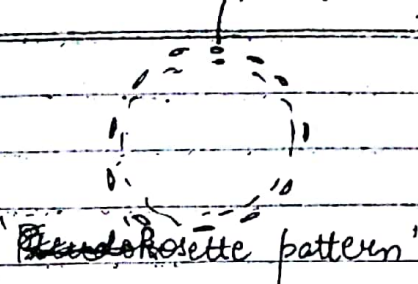 Rosette pattern"